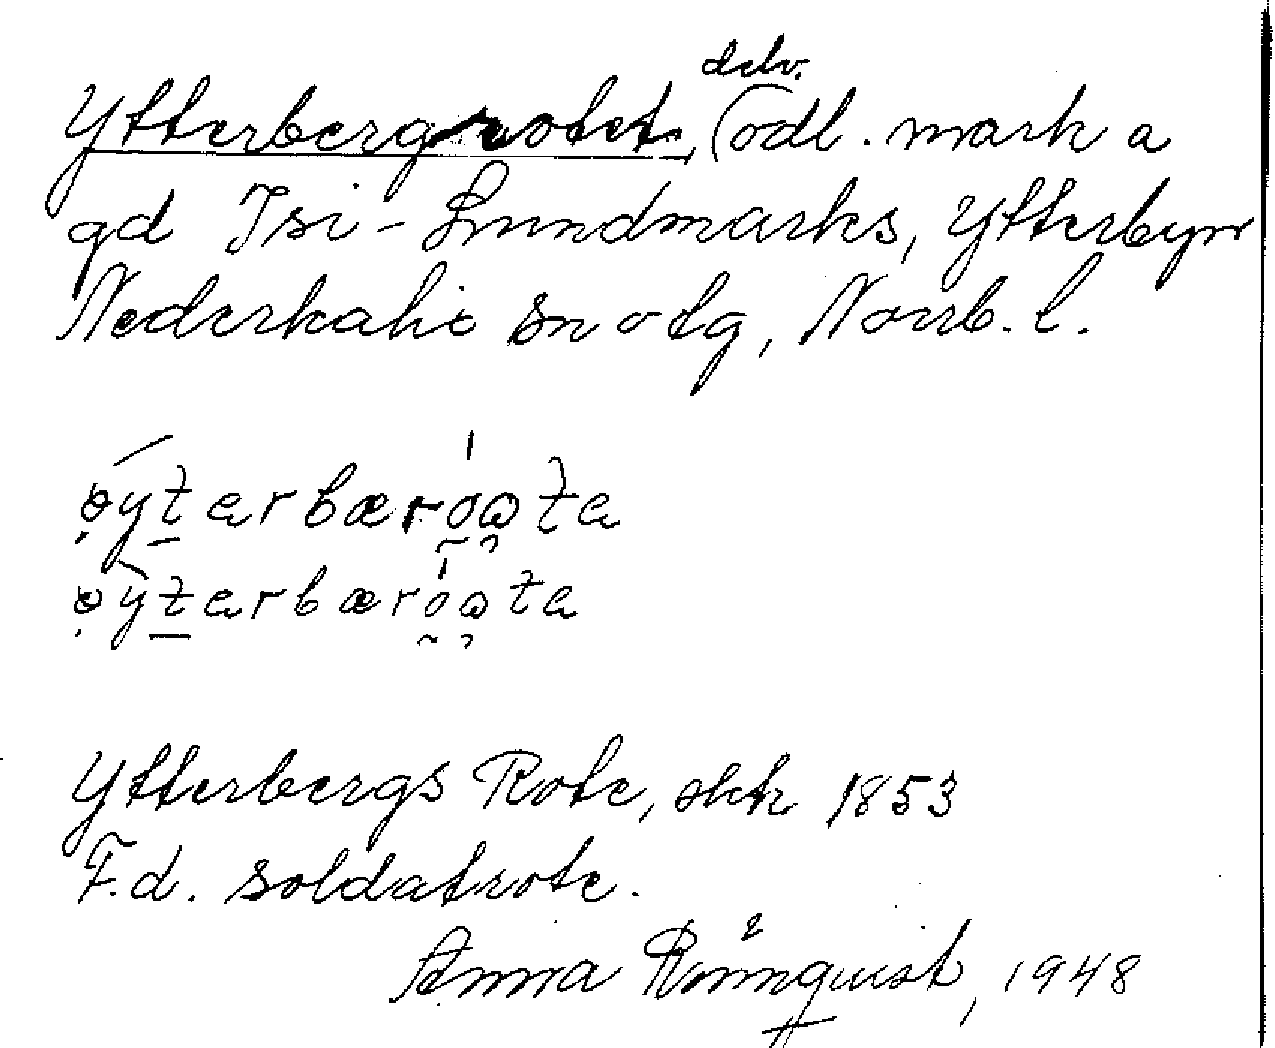 delv.
Ytterbergsrotet, (odl. mark a
gd Isi-Lundmarks, Ytterbyn
Nederkalix sn o tg, Norrb. l.
ýtarbæróta
ỳtarbæróta
Ytterbergs Rote, sktr 1853
F.d. soldatrote.
Anna Rönnquist, 1948